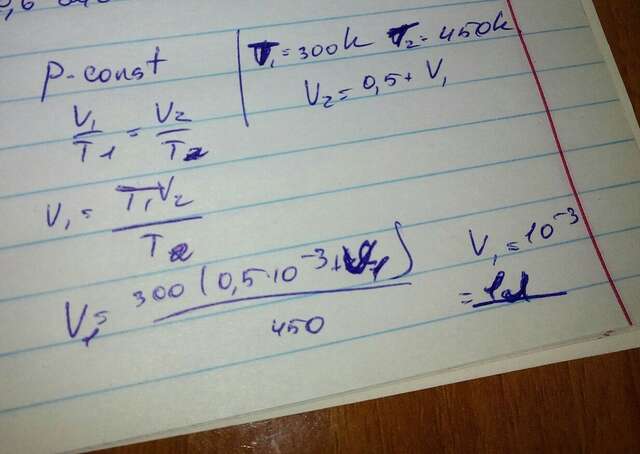 p-const
T₁=300k T₂=450k
V₂=0,5+V₁
V₁/T₁=V₂/T₂
V₁=T₁V₂/T₂
V₁=300(0,5·10⁻³+V₁)/450
V₁=10⁻³
=1л